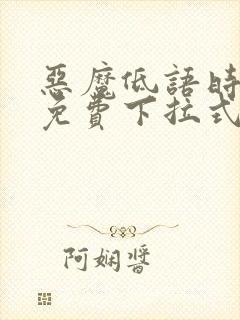 惡魔低語時
免費下拉式
阿娴醬